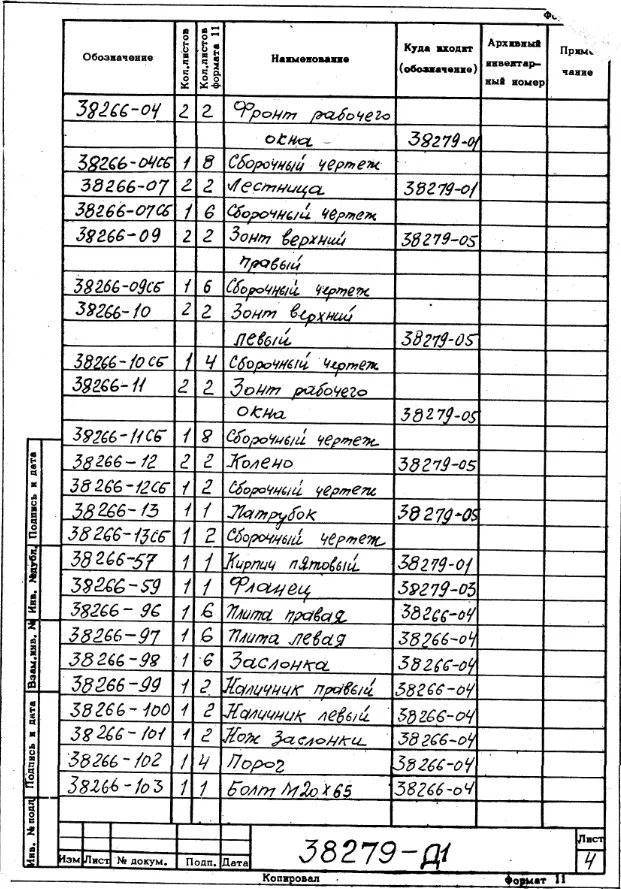 Обозначение Кол.листов Кол.листов формата 11 Наименование Куда входит (обозначение) Архивный инвентарный номер чание
38266-04 2 2 Фронт рабочего
окна 38279-01
38266-04СБ 1 8 Сборочный чертеж
38266-07 2 2 Лестница 38279-01
38266-07СБ 1 6 Сборочный чертеж
38266-09 2 2 Зонт верхний 38279-05
правый
38266-09СБ 1 6 Сборочный чертеж
38266-10 2 2 Зонт верхний
левый 38279-05
38266-10СБ 1 4 Сборочный чертеж
38266-11 2 2 Зонт рабочего
окна 38279-05
38266-11СБ 1 8 Сборочный чертеж
38266-12 2 2 Колено 38279-05
38266-12СБ 1 2 Сборочный чертеж
38266-13 1 1 Патрубок 38279-05
38266-13СБ 1 2 Сборочный чертеж
38266-57 1 1 Кирпич пятовый 38279-01
38266-59 1 1 Фланец 38279-03
38266-96 1 6 Плита правая 38266-04
38266-97 1 6 Плита левая 38266-04
38266-98 1 6 Заслонка 38266-04
38266-99 1 2 Наличник правый 38266-04
38266-100 1 2 Наличник левый 38266-04
38266-101 1 2 Нож заслонки 38266-04
38266-102 1 4 Порог 38266-04
38266-103 1 1 Болт М20х65 38266-04
Подпись и дата
Инв. №дубл.
Взам.инв. №
Подпись и дата
Инв. №подл
Изм Лист № докум. Подп. Дата
38279-Д1
Лист
4
Копировал Формат 11